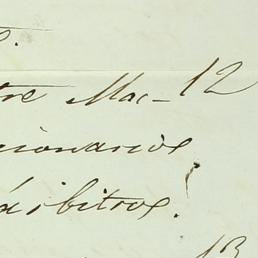 tre Mac- 12
cionarios
árbitros!
13